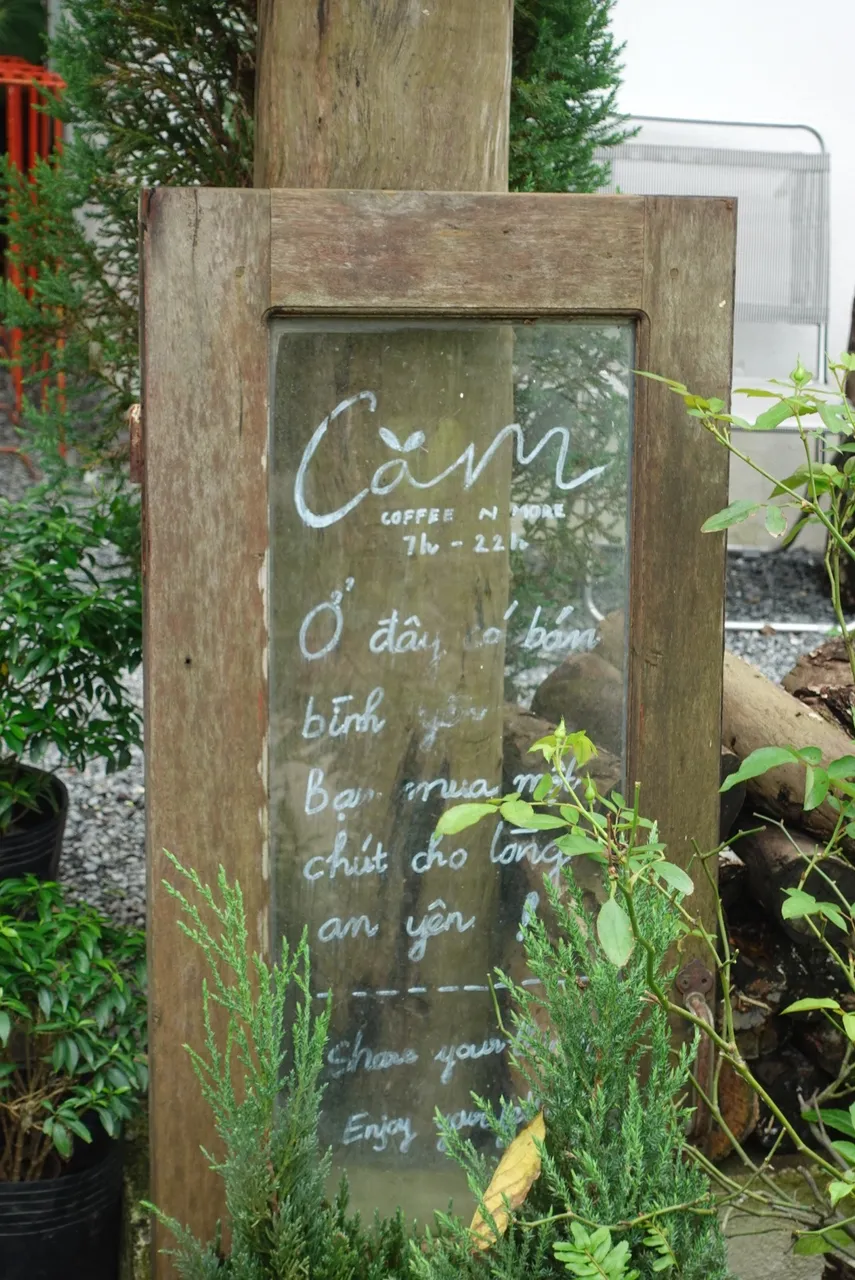 Căm
COFFEE N MORE
7h - 22h
Ở đây có bán
bình yên
Bạn mua một
chút cho lòng
an yên !
Share your
Enjoy